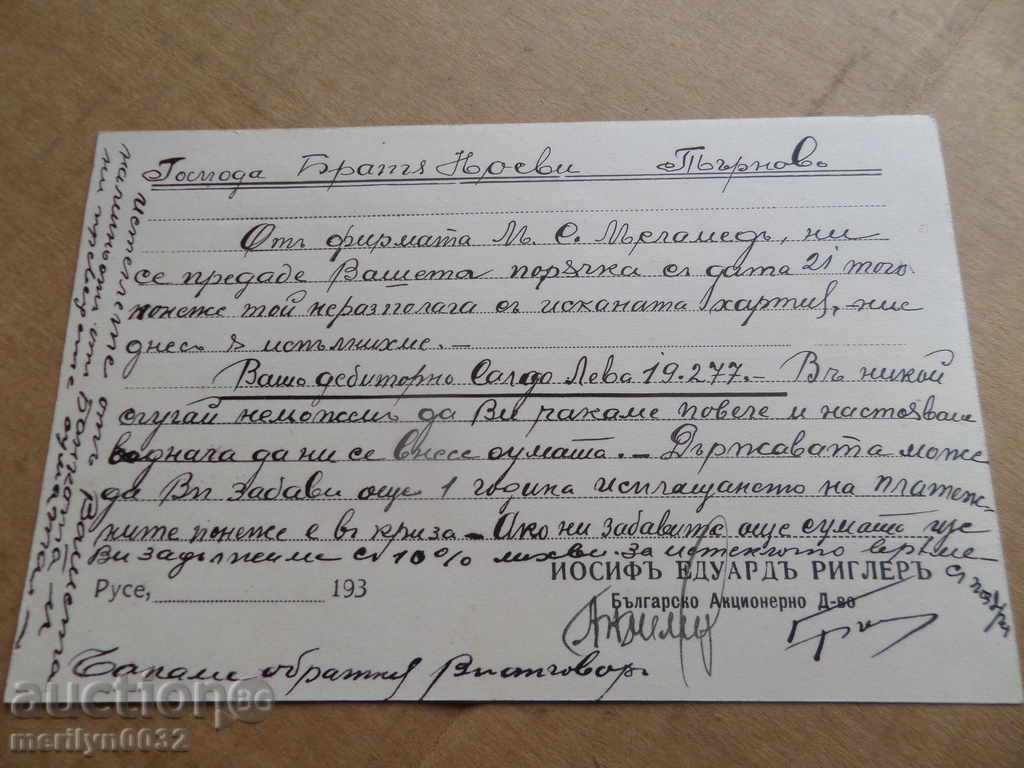 Господа Братя Ноеви Търновъ
Отъ фирмата М. С. Меламедъ, ни
се предаде Вашета поръчка съ дата 21 того
понеже той неразполага съ исканата хартия, ние
днесъ я испълнихме. —
Ваше дебиторно Салдо Лева 19.277. — Въ никой
случай неможемъ да Ви чакаме повече и настояваме
веднага да ни се внесе сумата. — Държавата може
да Ви забави още 1 година исплащането на платеж-
ните понеже е въ криза — Ако ни забавите още сумата ще
Ви задължиме съ 10% лихви за истеклото време
ИОСИФЪ ЕДУАРДЪ РИГЛЕРЪ
Българско Акционерно Д-во
Русе, 193
Чакаме обратния Ви отговоръ.
Истеглете отъ Вашета
наличность отъ Банката и
ни преведете сумата. —
auctionBG
merilyn0032